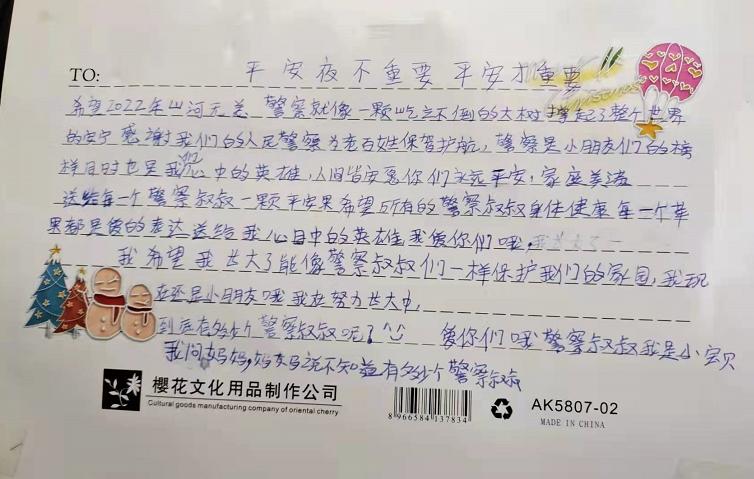 TO: 平安夜不重要 平安才重要
希望2022年山河无恙 警察就像一颗屹立不倒的大树撑起了整个世界
的安宁 感谢我们的人民警察为老百姓保驾护航，警察是小朋友们的榜
样同时也是我们心中的英雄，人间皆安愿你们永远平安，家庭美满
送给每一个警察叔叔一颗平安果希望所有的警察叔叔身体健康每一个苹
果都是爱的表达送给我心目中的英雄我爱你们哦，
我希望我长大了能像警察叔叔们一样保护我们的家园，我现
在还是小朋友哦我在努力长大中，
到底有多少个警察叔叔呢？ 爱你们哦警察叔叔我是小宝贝
我问妈妈，妈妈说不知道有多少个警察叔叔
樱花文化用品制作公司
Cultural goods manufacturing company of oriental cherry
8 966584 137834
AK5807-02
MADE IN CHINA